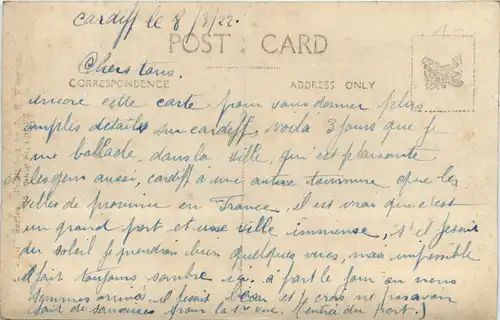 Cardiff le 8/3/22.
POST CARD
Chers tous.
CORRESPONDENCE
ADDRESS ONLY
encore cette carte pour vous donner plus
amples détails sur cardiff, voilà 3 jours que je
me ballade dans la ville, qui est plaisante
les gens aussi, cardiff a une autre tournure que les
villes de province en France, il est vrai que c'est
un grand port et une ville immense, s'il faisait
du soleil je prendrais bien quelques vues, mais impossible
il fait toujours sombre ici. à part le jour ou nous
sommes arrivés il faisait beau et je crois ne pas avoir
fait de pour la 1re vue. (entrée du Port.)